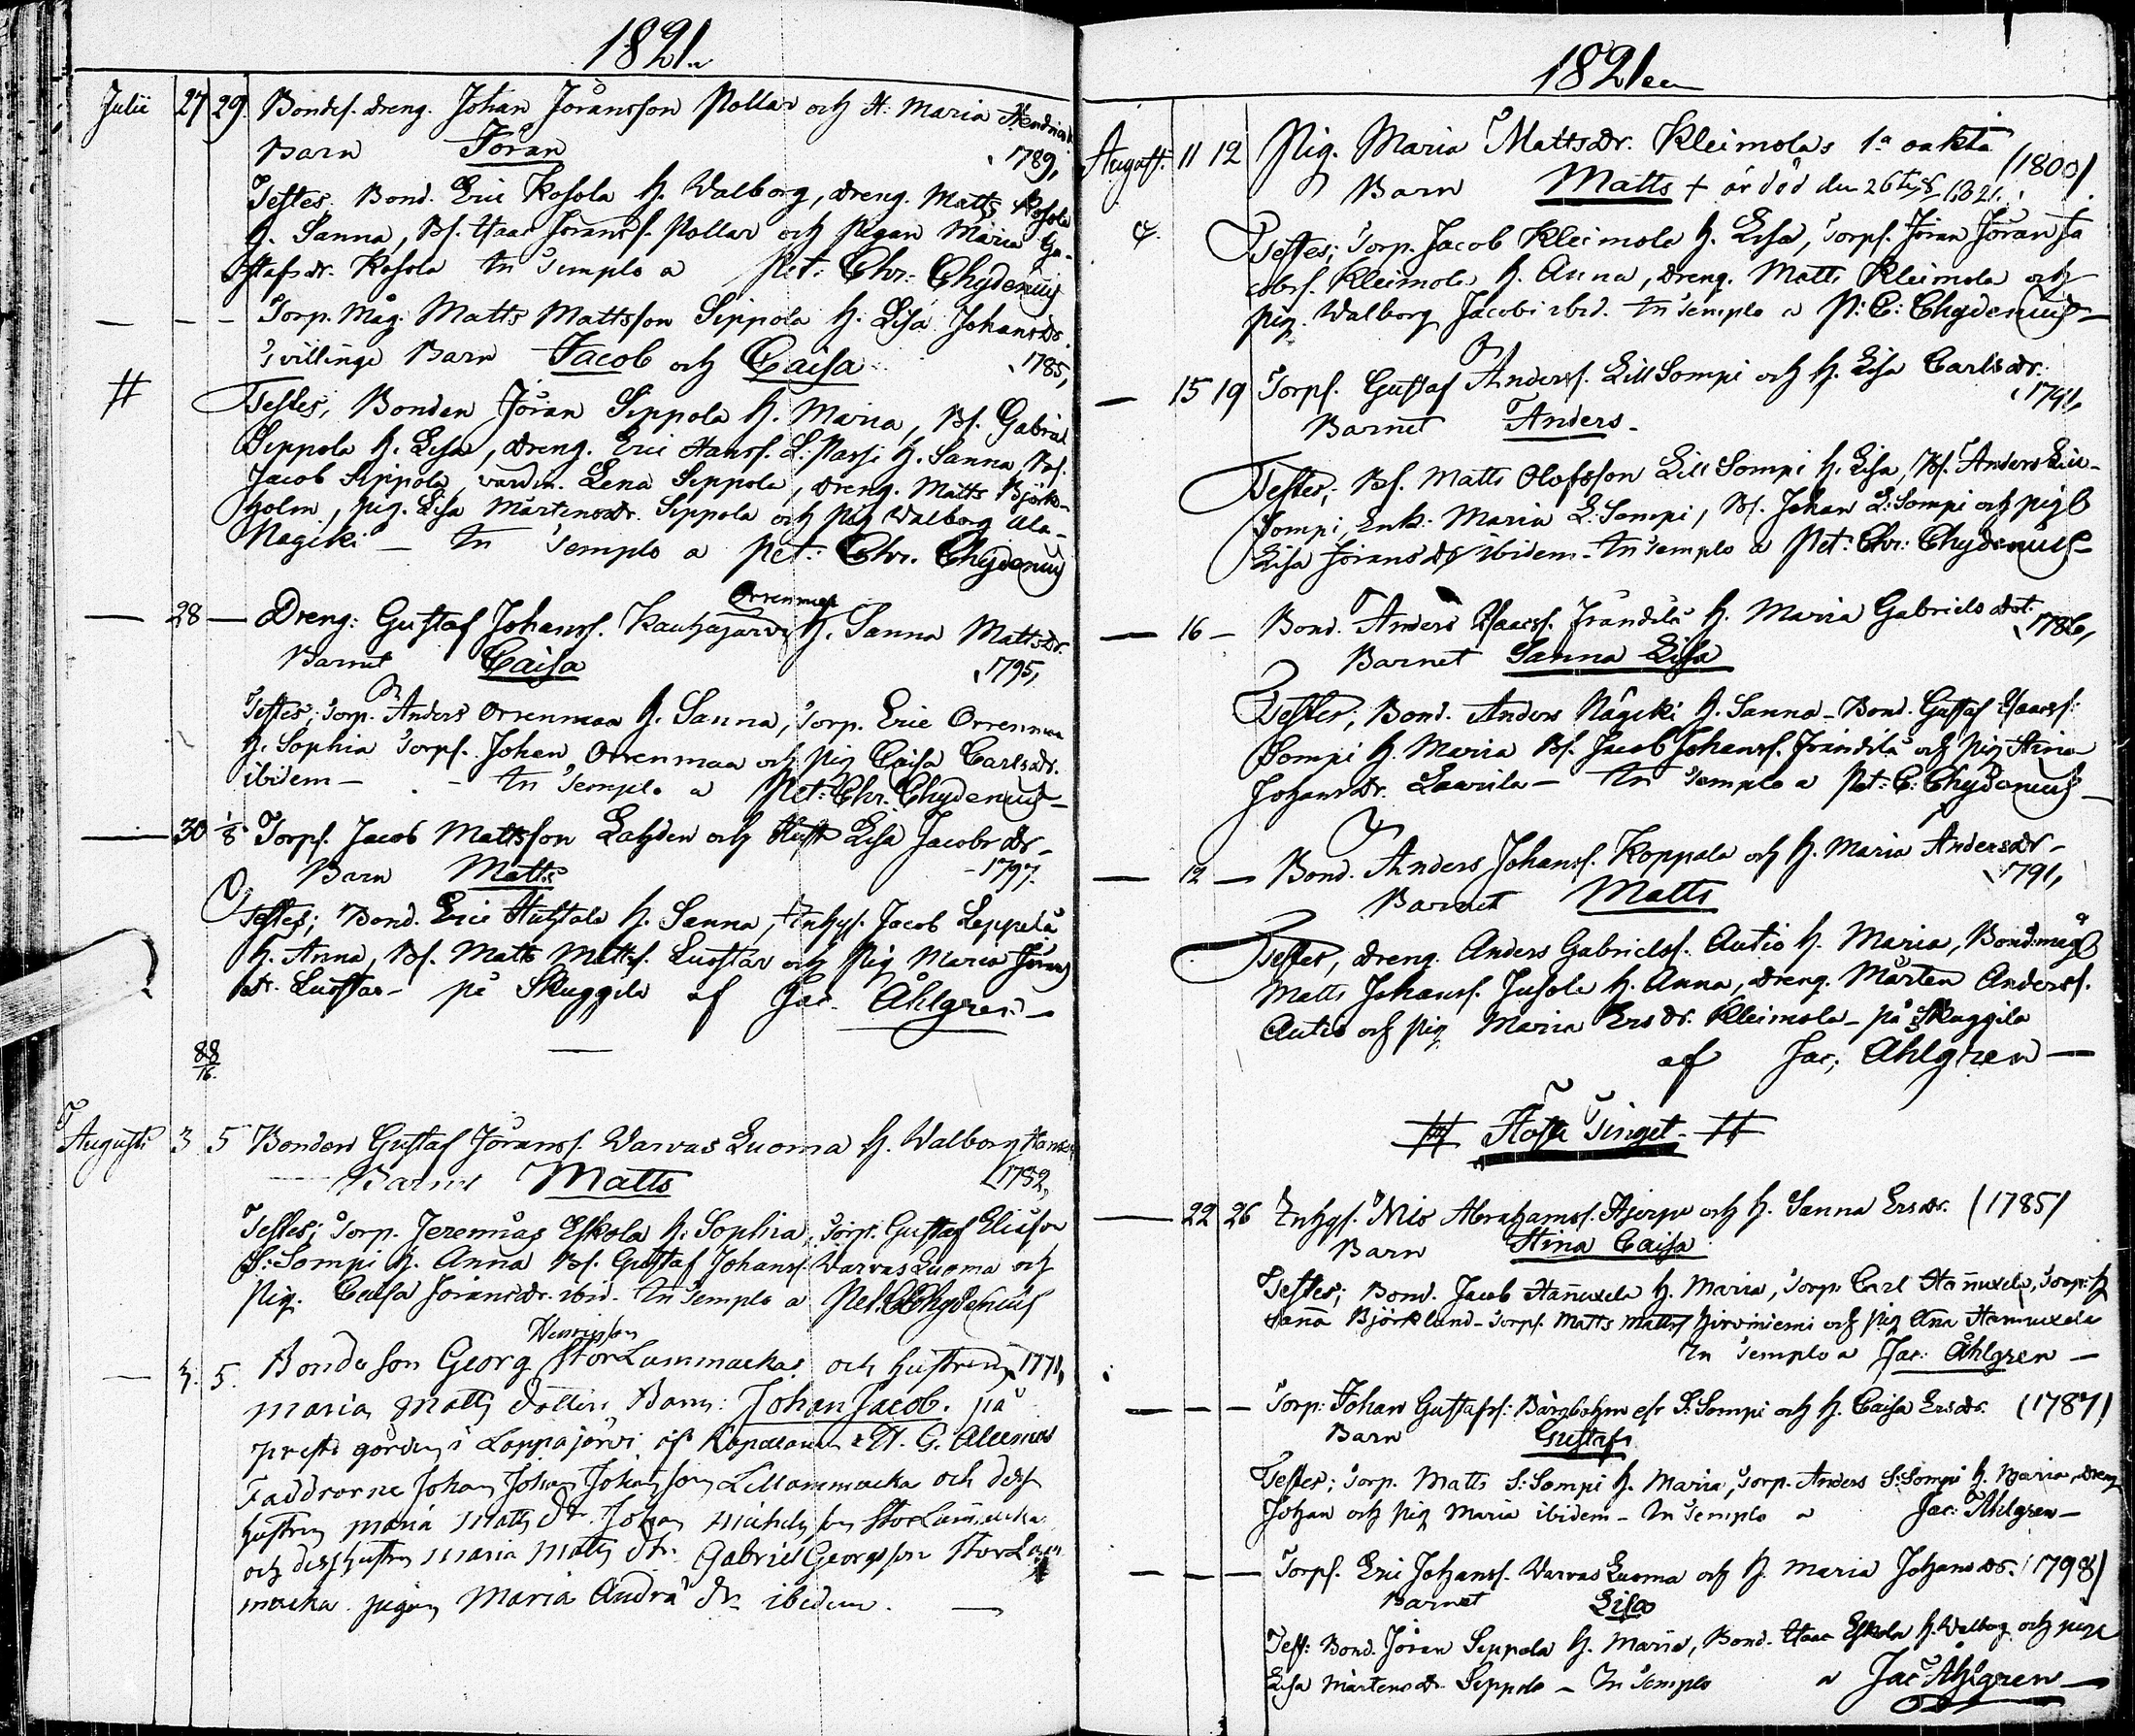 1821.
Julii 27 29. Bondes. dreng. Johan Jöransson Pollar och H. Maria Hendricsdr.
Barn Jöran 1789,
Testes. Bond. Eric Kosola h. Walborg, dreng. Matts Kosola
h. Sanna, Bs. Isaac Joranss. Pollar och Pigan Maria Gu-
stafsdr. Kosola In Templo a Pet: Chr: Chydenius
— — — Torp. Måg. Matts Mattsson Sippola h. Lisa Johansdr.
Tvillinge Barn Jacob och Caisa 1785,
# Testes, Bonden Jöran Sippola h. Maria, Bs. Gabriel
Sippola h. Lisa, dreng. Eric Hanss. L: Passi h. Sanna, Bs.
Jacob Sippola, Lena Sippola, dreng. Matts Björk-
holm, pig. Lisa Mårtensdr. Sippola och Pig Walborg Ala-
Nagiki — In Templo a Pet: Chr. Chydenius
Orrenmaa
— 28 — Dreng: Gustaf Johanss. Kauhajarvi h. Sanna Mattsdr.
Barnet Caisa 1795,
Testes; Torp. Anders Orrenmaa h. Sanna, Torp. Eric Orrenmaa
h. Sophia Torps. Johan Orrenmaa och pig Caisa Carlsdr.
ibidem — - In Templo a Pet: Chr. Chydenius —
— 30 1/8 Torps. Jacob Mattsson Lahden och Hust Lisa Jacobsdr —
Barn Matts - 1797.
Testes; Bond. Eric Huhtala h. Sanna, Inhys. Jacob Leppelä
h. Anna, Bs. Matts Mattss. Lustar och Pig Maria Jörans
dr. Lustar — på Skuggila af Jac. Åhlgren —
88
16.
Augusti 3 5 Bonden Gustaf Jöranss. Varvas Luoma h. Walborg
Barnet Matts 1782,
Testes; Torp. Jeremias Eskola h. Sophia, Torp. Gustaf Eliason
S: Sompi h. Anna Bs. Gustaf Johanss. Varvas Luoma och
Pig. Caisa Joransdr. ibid. In Templo a Pet. C Chydenius
— 4. 5. Bonde Son Georg StorLummackas och hustrun 1771,
maria Matts dotters Barn: Johan Jacob. på
preste gården i Lappajärvi af Kapellanen
Faddrarne Johan Johan Johansson Lillummacka och dess
hustru maria Matts dr. Johan Michelsson StorLummacka
och dess hustru Maria Matts dr. Gabriel Georgsson StorLum
macka pigan Maria Andra dr. ibidem. —
1821
August. 11 12 Pig. Maria Mattsdr. Kleimolas 1a oäkta (1800)
Barn Matts + är död den 26 1821.
Testes; Torp. Jacob Kleimola h. Lisa, Torps. Jöran Jöran Ja
cobs. Kleimola h. Anna, dreng. Matts Kleimola och
pig. Walborg Jacobi ibid. In Templo a P: C: Chydenius —
— 15 19 Torps. Gustaf Anderss. LillSompi och h. Lisa Carlsdr.
Barnet Anders — 1791,
Testes; Bs. Matts Olofsson LillSompi h. Lisa, Bs. Anders Lill-
Sompi, Enk: Maria L: Sompi, Bs. Johan L: Sompi och pig
Lisa Joransdr ibidem — In Templo a Pet: Chr: Chydenius —
— 16 — Bond. Anders Isaacs. Frändilä h. Maria Gabriels dot.
Barnet Sanna Lisa 1786,
Testes; Bond. Anders Någiki h. Sanna — Bond. Gustaf Isaacss:
Sompi h. Maria Bs. Jacob Johanss. Frändilä och pig Stina
Johansdr. Laurila — In Templo a Pet: C: Chydenius —
— 12 — Bond. Anders Johanss. Koppala och h. Maria Andersdr —
Barnet Matts 1791,
Testes, dreng. Anders Gabrielss. Autio h. Maria, Bond måg
Matts Johanss. Jusola h. Anna, dreng. Mårten Anderss.
Autio och pig Maria Ersdr. Kleimola — på Skuggila
af Jac; Åhlgren —
# Höste Tinget #
— 22 26 Inhys. Nils Abrahamss. Hjerpe och h. Sanna Ersdr. (1785)
Barn Stina Caisa
Testes; Bond. Jacob Hannuxela h. Maria, Torp. Carl Hannuxela, Torp: h
Sanna Björklund — Torps. Matts Mattss Hirviniemi och pig Ana Hannuxela
In Templo a Jac: Åhlgren —
— — — Torp: Johan Gustafss: Bärgbohm S: Sompi och h. Caisa Ersdr. (1787)
Barn Gustaf
Testes; Torp. Matts S: Sompi h. Maria, Torp. Anders S: Sompi h. Maria, dreng
Johan och pig Maria ibidem — In Templo a Jac: Åhlgren —
— — — Torps. Eric Johanss. Varvas Luoma och h. Maria Johansdr. (1798)
Barnet Lisa
Test: Bond. Jöran Seppola h. Maria, Bond. Isaac Eskola h. Walborg och pigan
Lisa Mårtensdr. Seppola — In Templo a Jac Åhlgren —